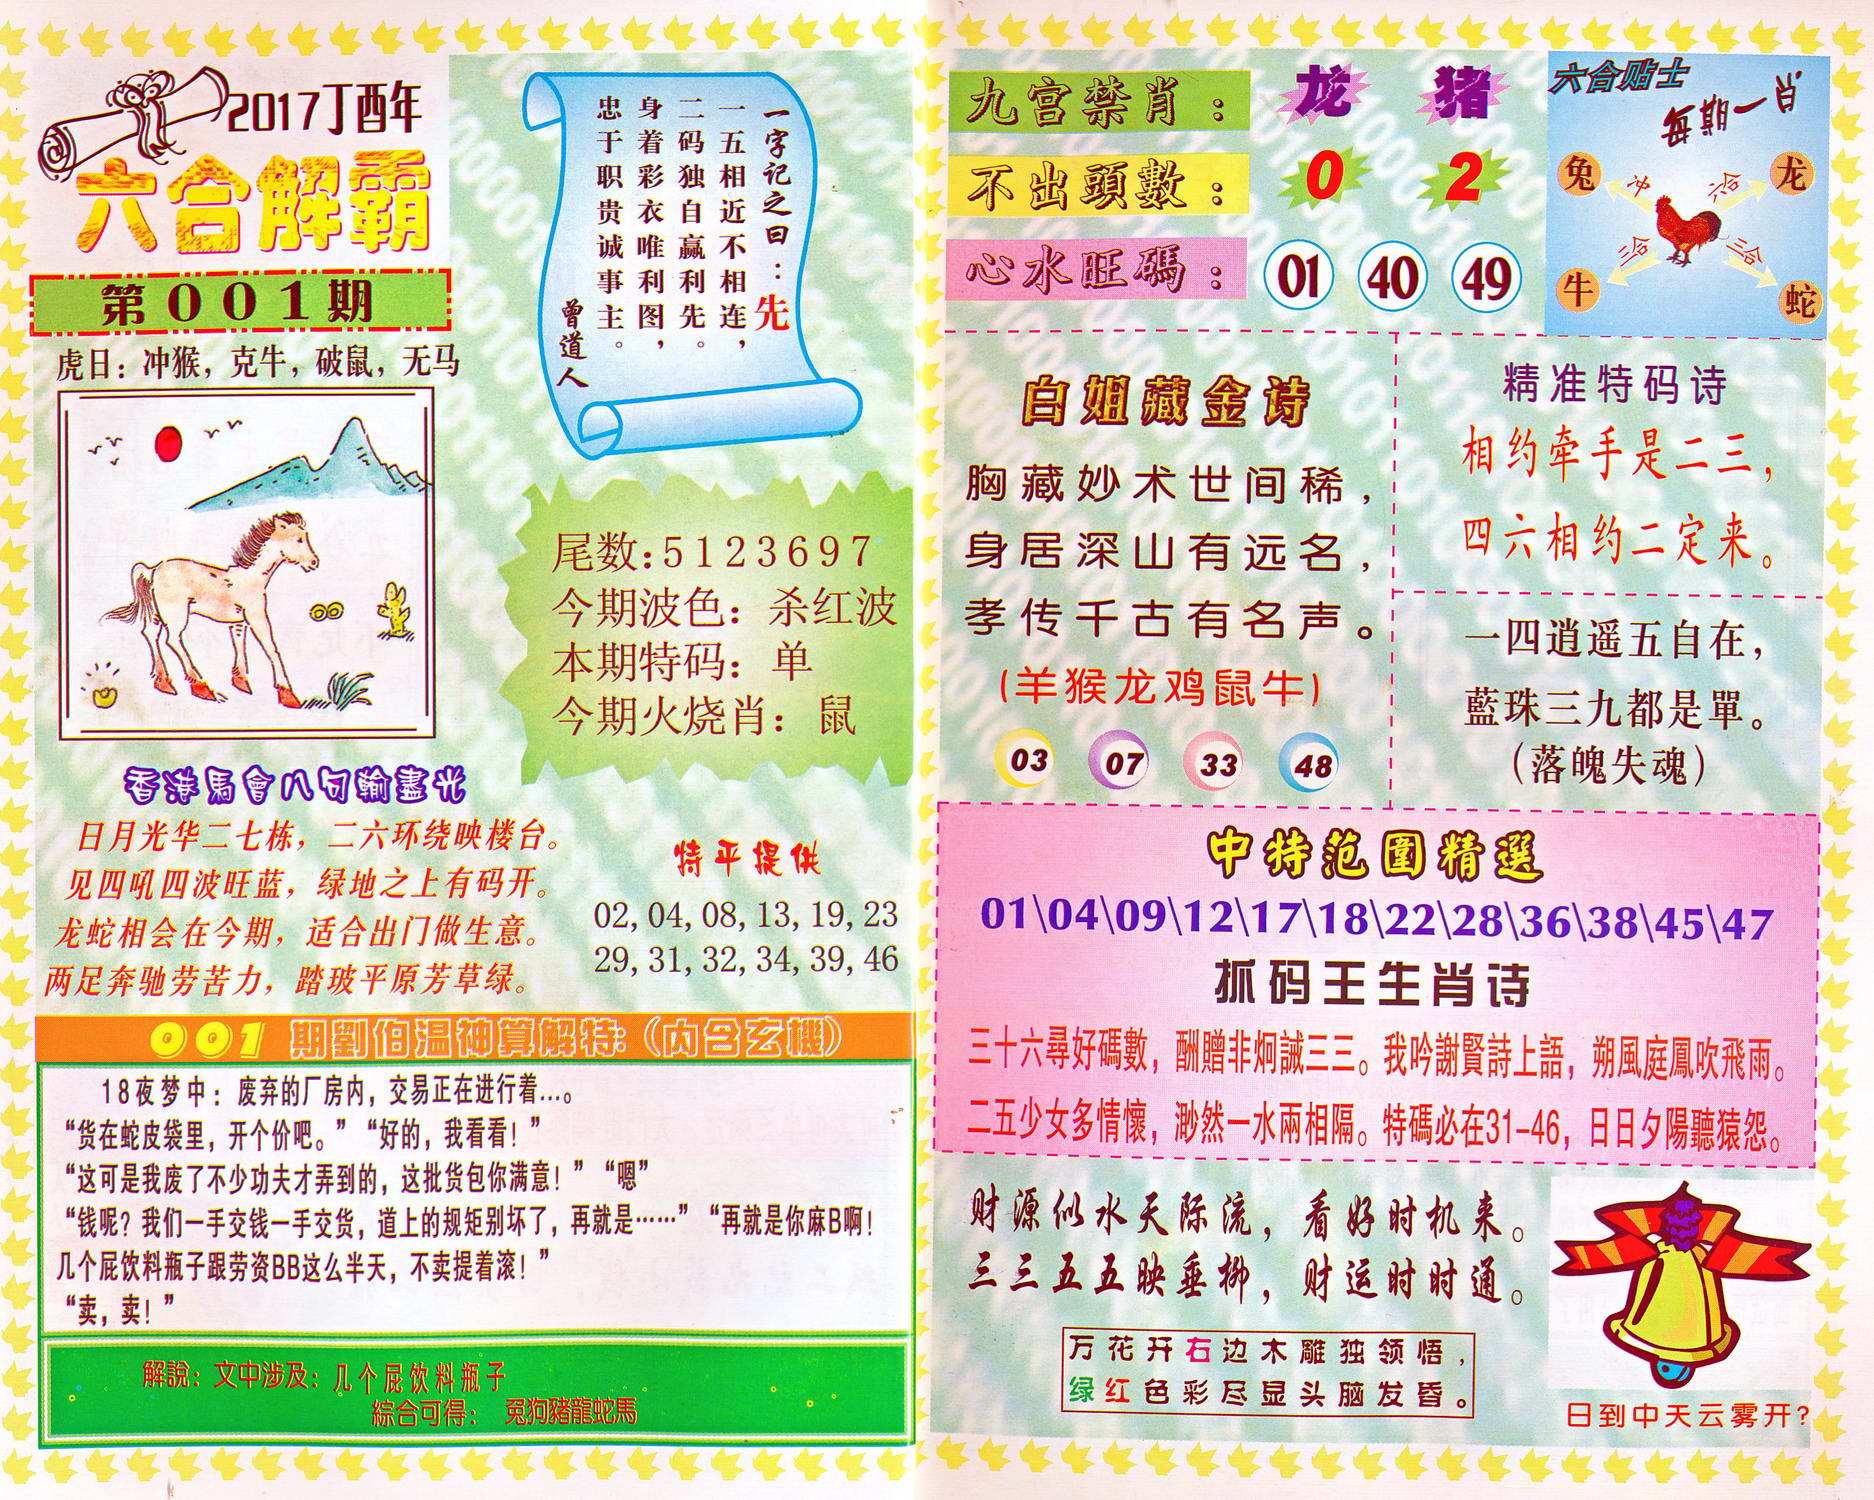 2017丁酉年
六合解霸
第001期
虎日：冲猴，克牛，破鼠，无马
一字记之曰：先
一五相近不相连，
二码独自赢利先。
身着彩衣唯利图，
忠于职贵诚事主。
曾道人
尾数：5123697
今期波色：杀红波
本期特码：单
今期火烧肖：鼠
香港馬會八句輸盡光
日月光华二七栋，二六环绕映楼台。
见四吼四波旺蓝，绿地之上有码开。
龙蛇相会在今期，适合出门做生意。
两足奔驰劳苦力，踏玻平原芳草绿。
特平提供
02,04,08,13,19,23
29,31,32,34,39,46
001期劉伯温神算解特：（内含玄機）
18夜梦中：废弃的厂房内，交易正在进行着…。
“货在蛇皮袋里，开个价吧。”“好的，我看看！”
“这可是我废了不少功夫才弄到的，这批货包你满意！”“嗯”
“钱呢？我们一手交钱一手交货，道上的规矩别坏了，再就是……”“再就是你麻B啊！
几个屁饮料瓶子跟劳资BB这么半天，不卖提着滚！”
“卖，卖！”
解說：文中涉及：几个屁饮料瓶子
綜合可得：兔狗豬龍蛇馬
九宫禁肖：龙 猪
不出頭數：0 2
心水旺碼：01 40 49
六合贴士
每期一肖
兔 冲 六合 龙
牛 三合 三合 蛇
白姐藏金诗
胸藏妙术世间稀，
身居深山有远名，
孝传千古有名声。
(羊猴龙鸡鼠牛)
03 07 33 48
精准特码诗
相约牵手是二三，
四六相约二定来。
一四逍遥五自在，
藍珠三九都是單。
（落魄失魂）
中特范圍精選
01\04\09\12\17\18\22\28\36\38\45\47
抓码王生肖诗
三十六尋好碼數，酬贈非炯誠三三。我吟謝賢詩上語，朔風庭鳳吹飛雨。
二五少女多情懷，渺然一水兩相隔。特碼必在31-46，日日夕陽聽猿怨。
财源似水天际流，看好时机来。
三三五五映垂柳，财运时时通。
万花开右边木雕独领悟，
绿红色彩尽显头脑发昏。
日到中天云雾开？